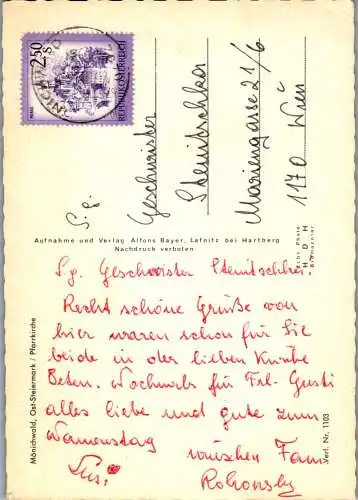 2.50
S
REPUBLIK ÖSTERREICH
S. g.
Geschwister
Stenitschka
Mariengasse 21/6
1170 Wien
Aufnahme und Verlag Alfons Bayer, Lafnitz bei Hartberg
Nachdruck verboten
Echt Photo
H D H
Mönichwald, Ost-Steiermark / Pfarrkirche
Verl. Nr. 1103
S. g. Geschwister
Recht schöne Grüße von
hier waren schon für Sie
beide in der lieben
Beten. Nochmals für Frl. Gusti
alles liebe und gute zum
Namenstag
wünschen Fam